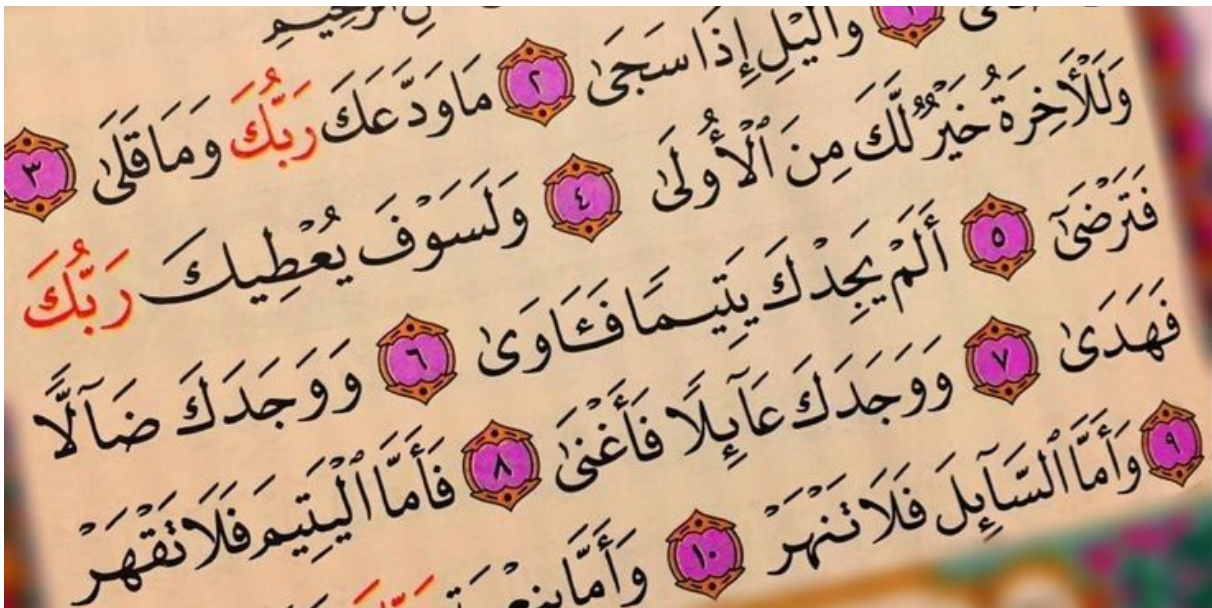 الرَّحِيمِ
١ وَٱلَّيْلِ إِذَا سَجَىٰ ٢ مَا وَدَّعَكَ رَبُّكَ وَمَا قَلَىٰ ٣
وَلَلْأٓخِرَةُ خَيْرٌ لَّكَ مِنَ ٱلْأُولَىٰ ٤ وَلَسَوْفَ يُعْطِيكَ رَبُّكَ
فَتَرْضَىٰٓ ٥ أَلَمْ يَجِدْكَ يَتِيمًا فَـَٔاوَىٰ ٦ وَوَجَدَكَ ضَآلًّا
فَهَدَىٰ ٧ وَوَجَدَكَ عَآئِلًا فَأَغْنَىٰ ٨ فَأَمَّا ٱلْيَتِيمَ فَلَا تَقْهَرْ
٩ وَأَمَّا ٱلسَّآئِلَ فَلَا تَنْهَرْ ١٠ وَأَمَّا بِنِعْمَةِ